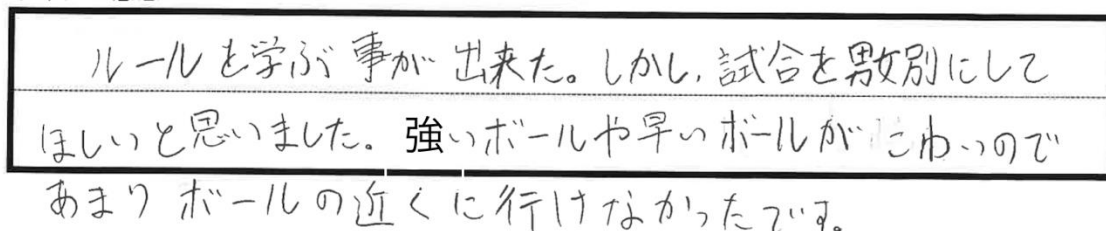 ルールを学ぶ事が出来た。しかし、試合を男女別にして
ほしいと思いました。強いボールや早いボールがこわいので
あまりボールの近くに行けなかったです。